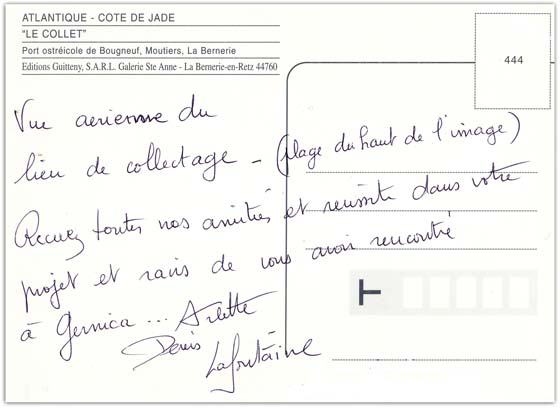 ATLANTIQUE - COTE DE JADE
"LE COLLET"
Port ostréicole de Bougneuf, Moutiers, La Bernerie
Editions Guitteny, S.A.R.L. Galerie Ste Anne - La Bernerie-en-Retz 44760
444
Vue aerienne du
lieu de collectage - (plage du haut de l'image)
Recevez toutes nos amitiés et reussite dans votre
projet et ravis de vous avoir rencontré
à Gernica ... Arlette
Denis
Lafontaine